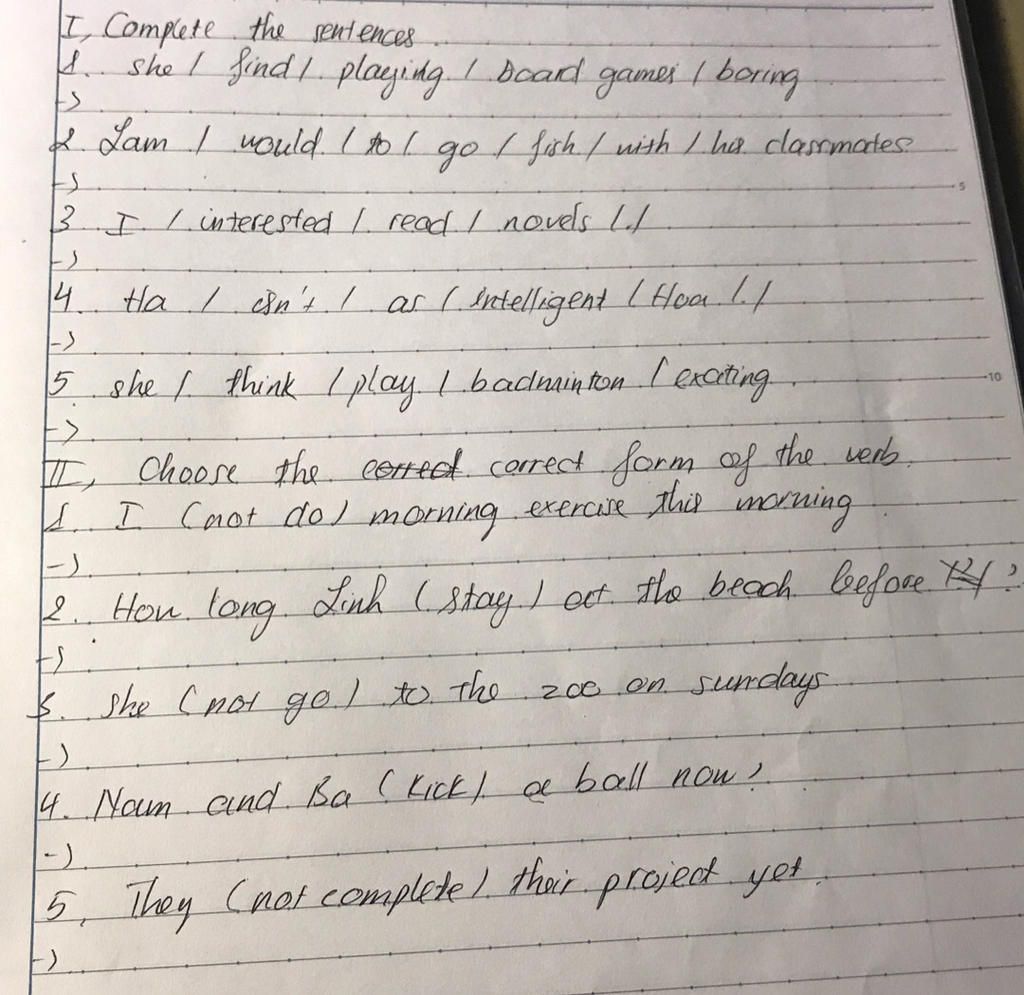 I, Complete the sentences
1. she / find / playing / board games / boring
->
2. Lam / would / to / go / fish / with / his classmates
->
3. I / interested / read / novels /./
->
4. Ha / isn't / as / intelligent / Hoa /./
->
5 she / think / play / badminton / exciting.
->
II, Choose the correct form of the verb
1. I (not do) morning exercise this morning.
->
2. How long Linh (stay) at the beach before ?
->
3. she (not go) to the zoo on sundays
->
4. Nam and Ba (kick) a ball now?
->
5, They (not complete) their project yet.
->
5
10